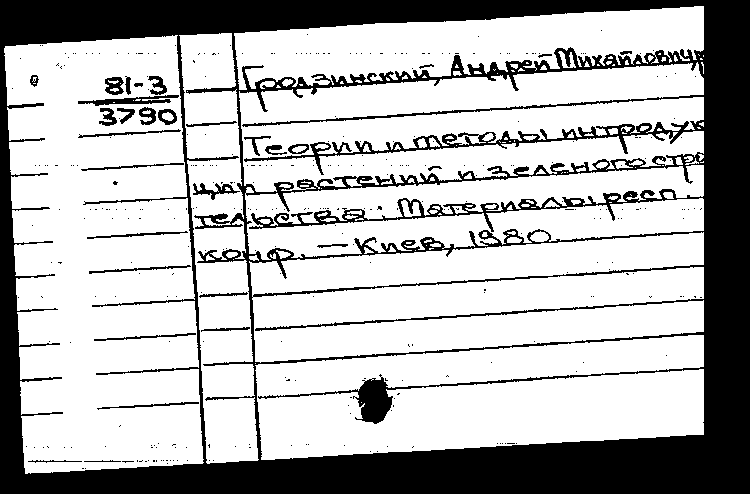 81-3
3790
Гродзинский, Андрей Михайлович
Теории и методы интродук
ции растений и зеленого стро
тельства: Материалы респ.
конф. — Киев, 1980.